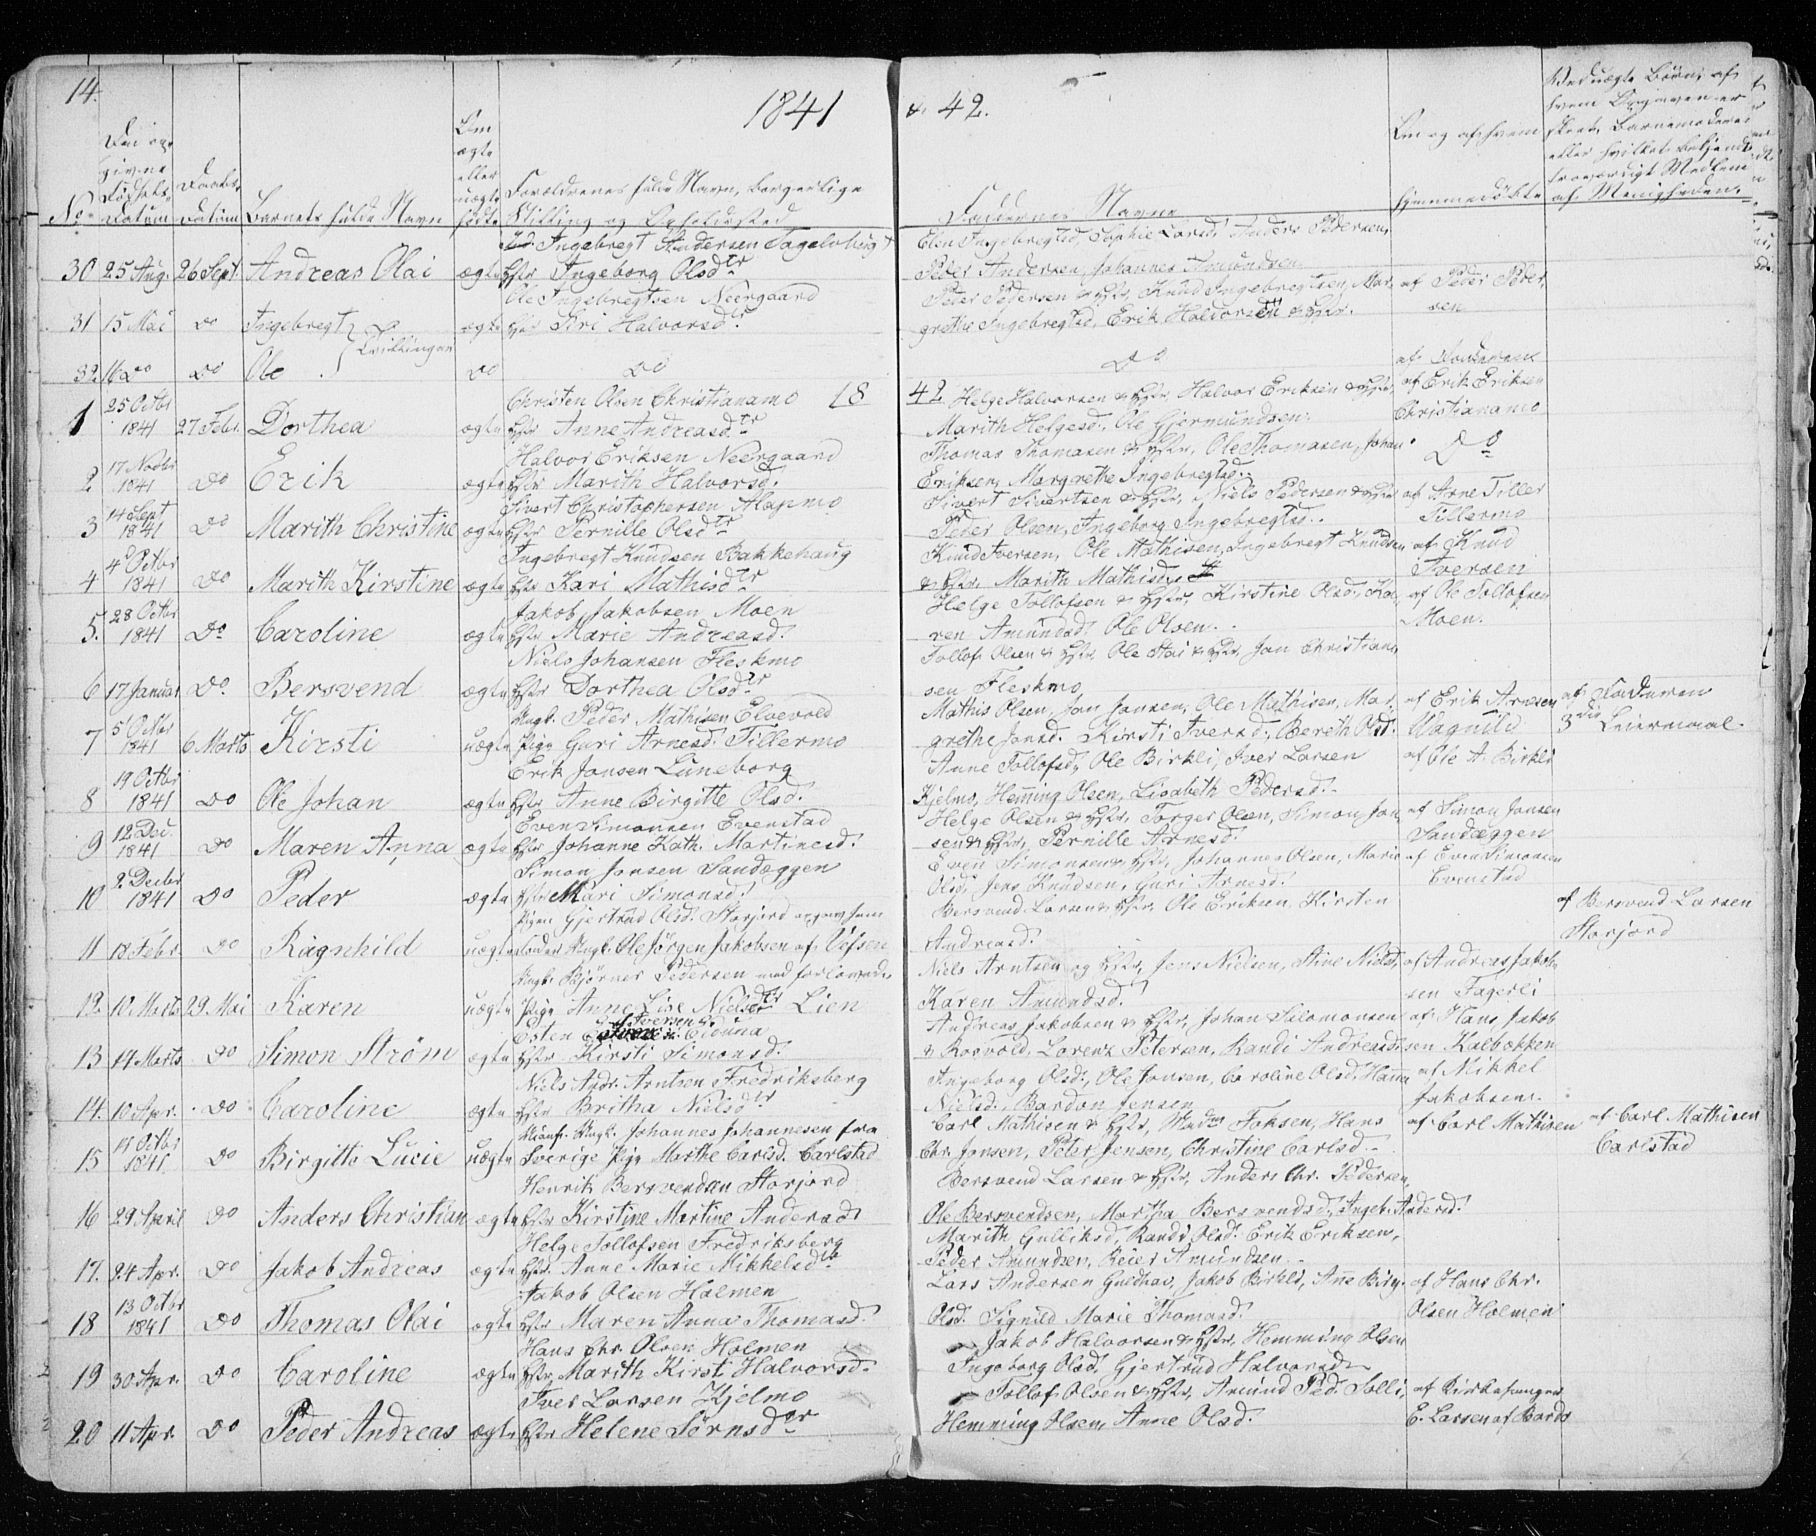 14.
1841 & 42.
No
Den opgivne Fødsels-Datum
Daabs-Datum
Barnets fulde Navn
Om ægte eller uægte fødte
Forældrenes fulde Navn, borgerlige Stilling og Opholdssted
Faddernes Navne
Om og af hvem hjemmedöbte
Ved uægte Börn, af hvem Opgaven er skeet
30 25 Aug. 26 Sept. Andreas Olai ægte Ingebregt Andersen Fagelvbugt Hstr Ingeborg Olsdtr
Elen Ingebregtsd, Sophie Larsd, Anders Pedersen,
Peder Andersen, Johannes Amundsen
31 15 Mai Do Ingebregt } Tvillinger ægte Ole Ingebregtsen Neergaard Hstr Siri Halvorsd.
Peder Pedersen & Hstr, Knud Ingebregtsen, Mar-
grethe Ingebregtsd, Erik Halvorsen & Hstr.
af Peder Peder-
sen
32. 16 Do Do Ole Do Do
Do
af Faderen
1 25 Octbr 1841 27 Febr. Dorthea ægte Christen Olsen Christianamo Hstr Anne Andreasdtr
18 42 Helge Halvorsen & Hstr, Halvor Eriksen & Hstr,
Marith Helgesd., Ole Gjermundsen.
af Erik Eriksen
Christianamo
2 17 Novbr 1841 Do Erik ægte Halvor Eriksen Neergaard Hstr Marith Halvorsd.
Thomas Thomasen & Hstr, Ole Thomasen, Johan
Eriksen, Margrethe Ingebregtsd.
Do
3 14 Sept 1841 Do Marith Christine ægte Sivert Christophersen Alapmo Hstr Pernille Olsdtr
Sivert Sivertsen & Hstr, Niels Pedersen & Hstr
Peder Olsen, Ingeborg Ingebregtsd..
af Arne Tiller
Tillermo
4 4 Octbr 1841 Do Marith Kirstine ægte Ingebregt Knudsen Bakkehaug Hstr Kari Mathisdtr
Knud Iversen, Ole Mathisen, Ingebregt Knudsen
& Hstr Marith Mathisd.
af Knud
Iversen
5. 28 Octbr 1841 Do Caroline ægte Jakob Jakobsen Moen Hstr Marie Andreasd.
Helge Tollofsen & Hstr, Kirstine Olsd, Ka-
ren Amundsd. Ole Olsen.
af Ole Tollofsen
Moen.
6 17 Januar Do Bersvend ægte Niels Johansen Fleskmo Hstr Dorthea Olsdtr
Tollof Olsen & Hstr, Ole Stai & Hstr, Jon Christian-
sen Fleskmo
7 5 Octbr 1841 6 Marts Kirsti uægte Ungk. Peder Mathisen Elvevold Pige Guri Arnesd. Tillermo
Mathis Olsen, Jon Jonsen, Ole Mathisen, Mar-
grethe Jonsd. Kirsti Iversd, Bereth Olsd.
af Erik Arnesen
Wagnild
af Faderen
3die Leiermaal
8 19 Octbr 1841 Do Ole Johan ægte Erik Jonsen Luneborg Hstr Anne Birgitte Olsd.
Anne Tollofsd, Ole Birkli, Iver Larsen
Kjelmo, Heming Olsen, Lisabeth Pedersd.
af Ole A. Birkli
9 12 Dec. 1841 Do Maren Anna ægte Even Simonsen Evenstad Hstr Johanne Kath. Martinesd.
Helge Olsen & Hstr, Torger Olsen, Simon Jon-
sen & Hstr, Pernille Arnesd.
af Simon Jonsen
Sandæggen
10 2 Decbr 1841 Do Peder ægte Simon Jonsen Sandæggen Hstr Mari Simonsd.
Even Simonsen & Hstr, Johannes Olsen, Marie
Olsd, Jens Knudsen, Guri Arnesd.
af Even Simonsen
Evenstad
11 18 Febr. Do Ragnhild uægte Pigen Gjertrud Olsd. Storjord opgav som Fader Ungk. Ole Jørgen Jakobsen af Vefsen
Bersvend Larsen & Hstr, Ole Eriksen, Kirsten
Andreasd.
af Bersvend Larsen
Storjord
12. 10 Marts 29 Mai Karen uægte Ungk. Bjørner Pedersen med forlovede Pige Anne Lise Nielsdtr Lien
Niels Arntsen og Hstr, Jens Nielsen, Stine Nielsd,
Karen Amundsd.
af Andreas Jakob-
sen Fagerli
13 14 Marts Do Simon Strøm ægte Esten Iversen Hstr Kirsti Simonsd.
Andreas Jakobsen & Hstr, Johan Salomonsen
& Rosvold, Lorenz Petersen, Randi Andreasd.
af Hans Jakob-
sen Kalbækken
14. 10 Apr. Do Caroline ægte Niels Andr. Arntsen Fredriksberg Hstr Britha Nielsdtr
Ingeborg Olsd., Ole Jonsen, Caroline Olsd, Hanna
Nielsd., Bardon Jensen
af Mikkel
Jakobsen.
15 15 Octbr 1841 Do Birgitte Lucie uægte Ungk. Johannes Johannesen fra Sverige Pige Marthe Carlsd. Carlstad
Carl Mathisen & Hstr, Madm Foksen, Hans
Chr. Jensen, Peter Jensen, Christine Carlsd.
af Carl Mathisen
af Carl Mathisen
Carlstad
16 29 April Do Anders Christian ægte Henrik Bersvendsen Storjord Hstr Kirstine Martine Andersd.
Bersvend Larsen & Hstr, Anders Chr. Pedersen,
Ole Bersvendsen, Martha Bersvendsd, Ingeb. Andersd.
17. 24 Apr. Do Jakob Andreas ægte Helge Tollofsen Fredriksberg Hstr. Anne Marie Mikkelsdtr
Marith Gulliksd, Randi Olsd. Erik Eriksen,
Peder Amundsen, Reier Amundsen.
18 13 Octbr 1841 Do Thomas Olai ægte Jakob Olsen Holmen Hstr Maren Anna Thomasd.
Lars Andersen Guldhav, Jakob Birkli, Ane Birg.
Olsd. Signild Marie Thomasd.
af Hans Chr.
Olsen Holmen
19 30 Apr. Do Caroline ægte Hans Chr. Olsen Holmen Hstr Marith Kirst. Halvorsd.
Jakob Halvorsen & Hstr, Hemming Olsen
Ingeborg Olsd, Gjertrud Halvorsd.
20 11 Apr. Do Peder Andreas ægte Iver Larsen Kjelmo Hstr Helene Sørnsdtr
Tollof Olsen & Hstr, Amund Ped. Solli,
Hemming Olsen, Anne Olsd.
af Kirkesanger
E. Larsen af Bardo